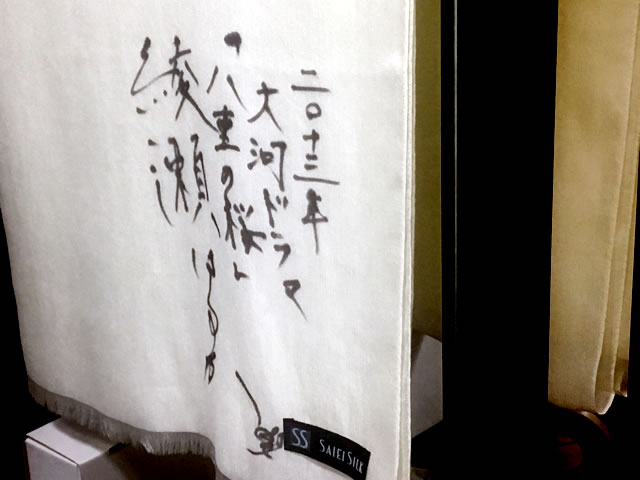 二〇十三年
大河ドラマ
「八重の桜」
綾瀬はるか
SS SAIEI SILK